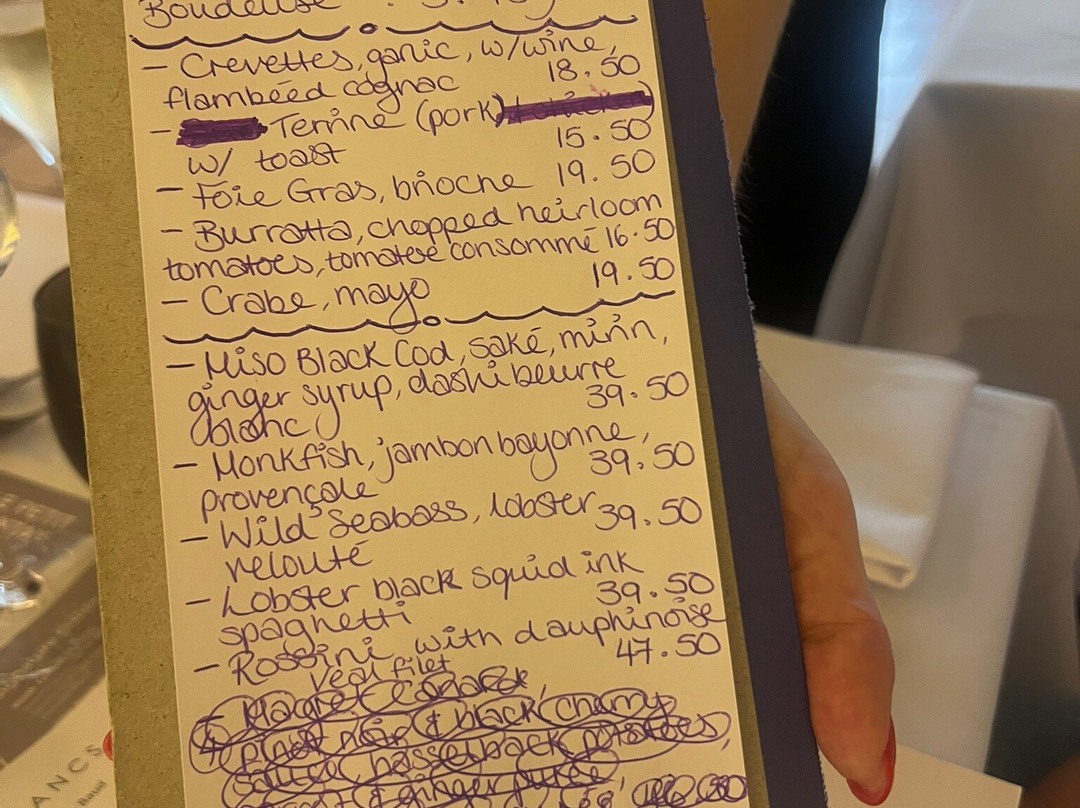 Boudeuse
- Crevettes, garlic, w/wine,
flambéed cognac 18.50
- Terrine (pork)
w/ toast 15.50
- Foie Gras, brioche 19.50
- Burratta, chopped heirloom
tomatoes, tomatese consommé 16.50
- Crabe, mayo 19.50
- Miso Black Cod, saké, mirin,
ginger syrup, dashi beurre
blanc 39.50
- Monkfish, jambon bayonne,
provençale 39.50
- Wild Seabass, lobster
velouté 39.50
- Lobster black squid ink
spaghetti 39.50
- Rossini with dauphinoise
veal filet 47.50
- Magret
pinot noir & black cherry
sauce, hasselback potatoes,
& ginger purée
ANCS